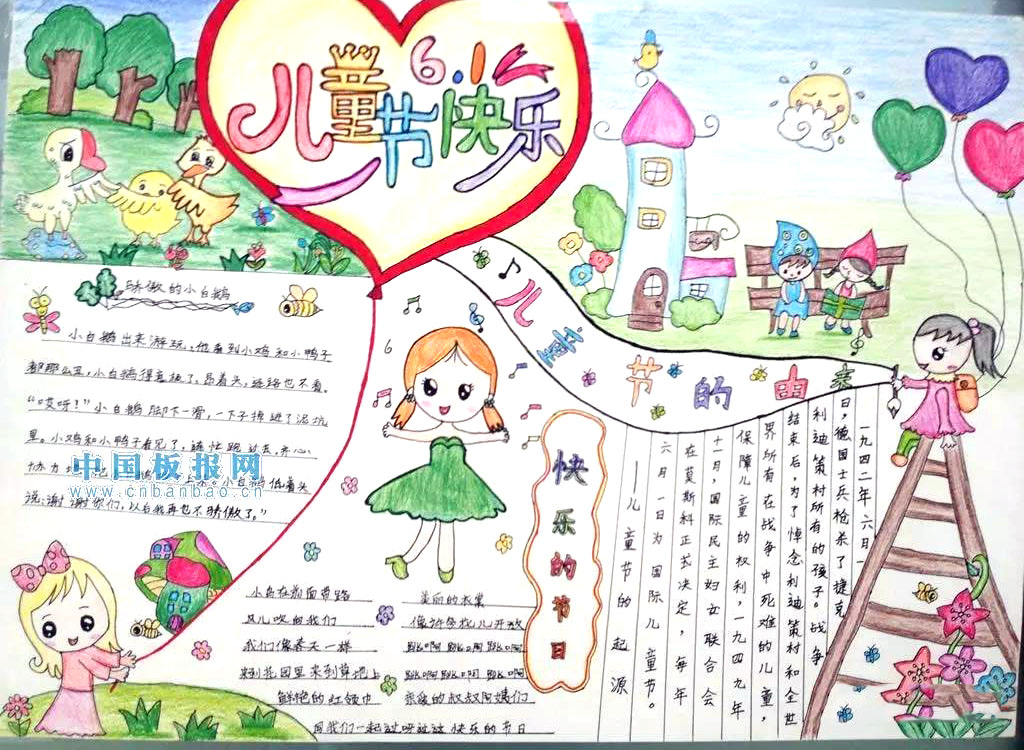 6.1
儿童节快乐
骄傲的小白鹅
小白鹅出来游玩，他看到小鸡和小鸭子
都那么丑，小白鹅得意极了，昂着头，连路也不看。
“哎呀！”小白鹅脚下一滑，一下子掉进了泥坑
里。小鸡和小鸭子看见了，连忙跑过去，齐心
协力
小白鹅低着头
说：谢谢你们，以后我再也不骄傲了。”
中国板报网
www.cnbanbao.cn
儿童节的由来
一九四二年六月一
日，德国士兵枪杀了捷克
利迪策村所有的孩子。战争
结束后，为了悼念利迪策村和全世
界所有在战争中死难的儿童，
保障儿童的权利，一九四九年
十一月，国际民主妇女联合会
在莫斯科正式决定，每年
六月一日为国际儿童节。
——儿童节的起源
快乐的节日
小鸟在前面带路
风儿吹向我们
我们像春天一样
来到花园里来到草地上
鲜艳的红领巾
美丽的衣裳
像许多花儿开放
跳啊跳啊跳啊
跳啊跳啊跳啊
亲爱的叔叔阿姨们
同我们一起过呀过这快乐的节日